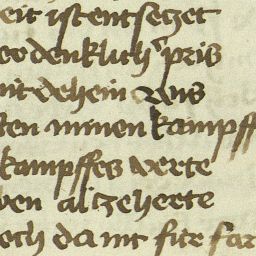 eit ist entseczet
er denklich pris
mit dehein wis
sten minen kampff
kampffes verte
ben al ze herte
och da mit fur far